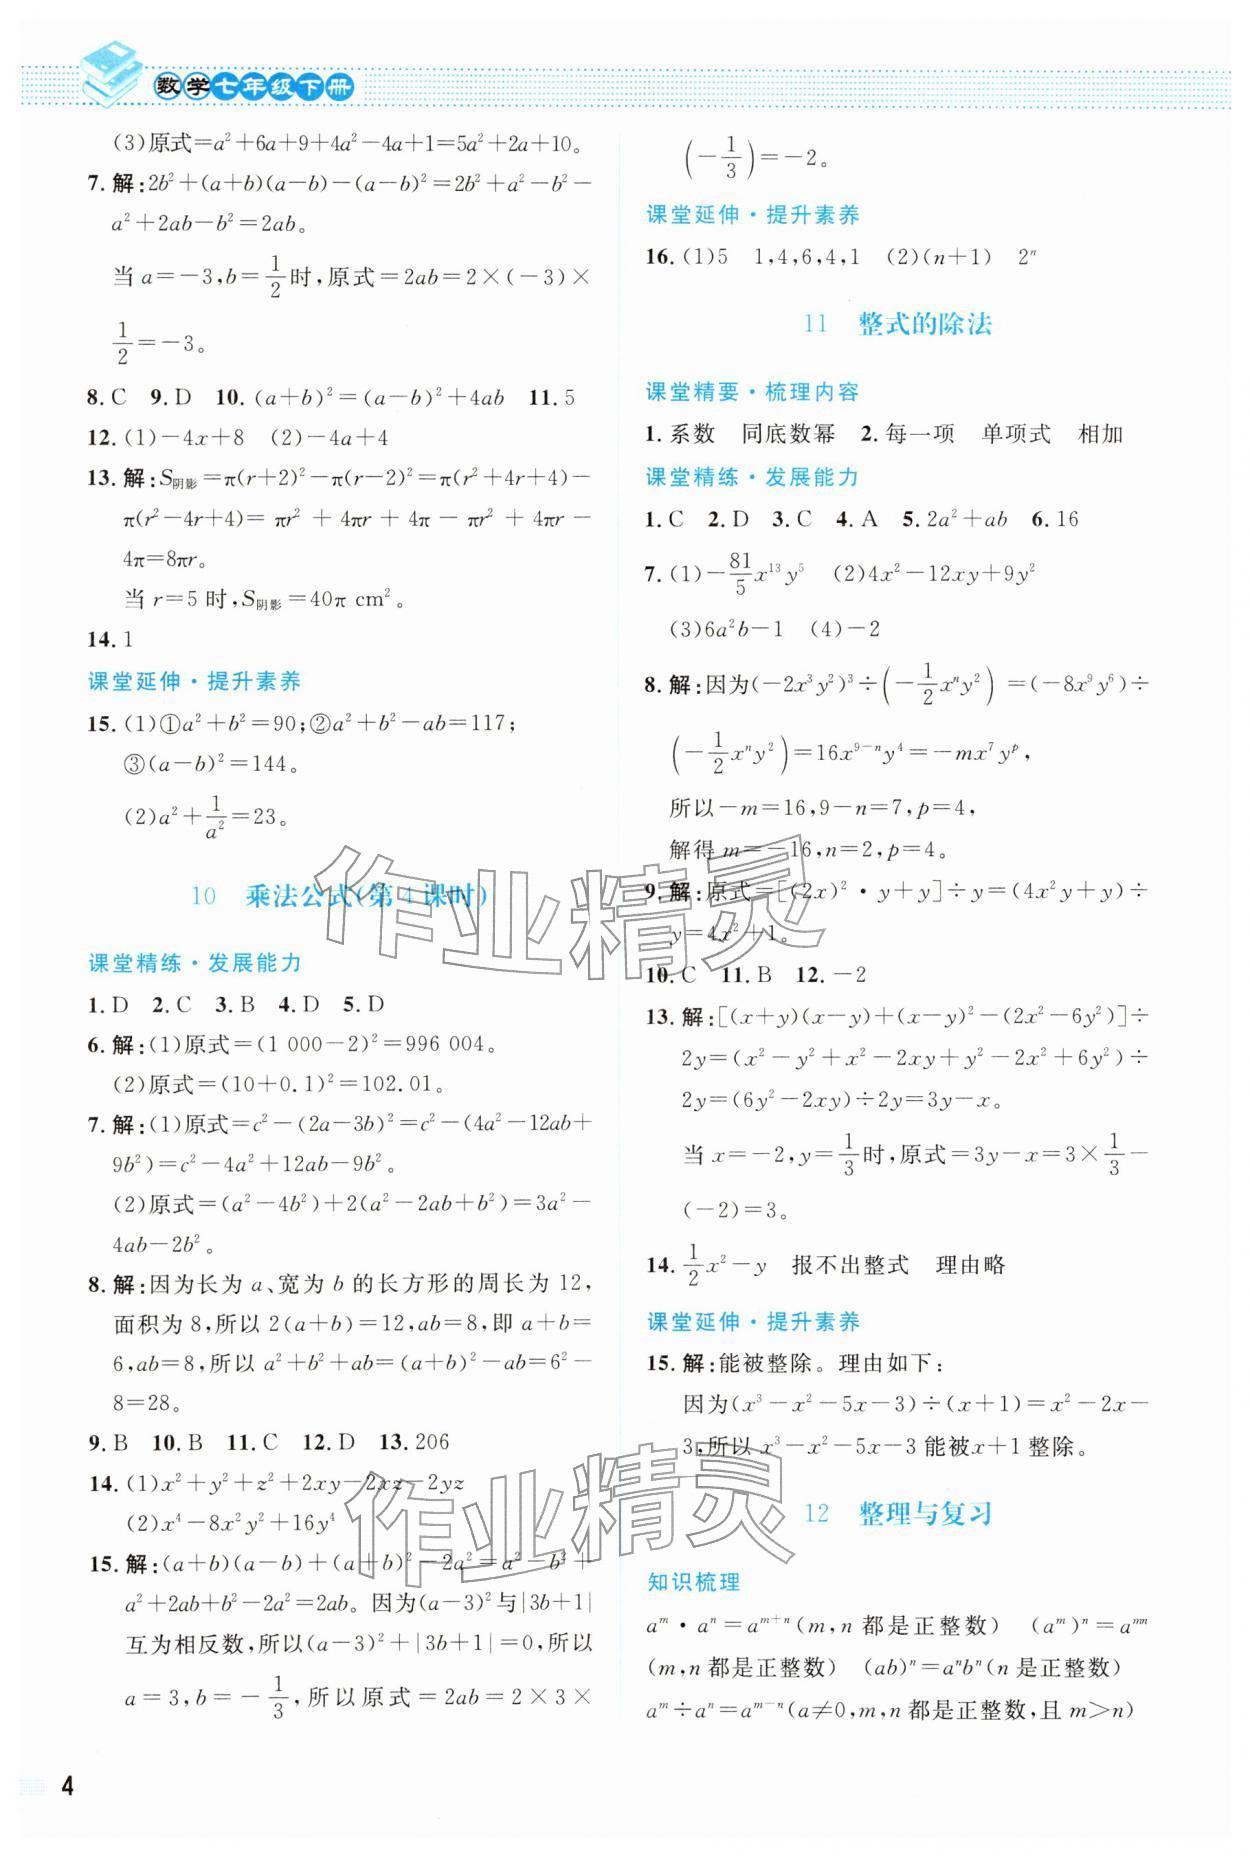 数学七年级下册
(3)原式=a²+6a+9+4a²-4a+1=5a²+2a+10。
7.解:2b²+(a+b)(a-b)-(a-b)²=2b²+a²-b²-
a²+2ab-b²=2ab。
当a=-3,b=1/2时,原式=2ab=2×(-3)×
1/2=-3。
8.C 9.D 10.(a+b)²=(a-b)²+4ab 11.5
12.(1)-4x+8 (2)-4a+4
13.解:S阴影=π(r+2)²-π(r-2)²=π(r²+4r+4)-
π(r²-4r+4)=πr²+4πr+4π-πr²+4πr-
4π=8πr。
当r=5时,S阴影=40π cm²。
14.1
课堂延伸·提升素养
15.(1)①a²+b²=90;②a²+b²-ab=117;
③(a-b)²=144。
(2)a²+1/a²=23。
10 乘法公式(第4课时)
课堂精练·发展能力
1.D 2.C 3.B 4.D 5.D
6.解:(1)原式=(1 000-2)²=996 004。
(2)原式=(10+0.1)²=102.01。
7.解:(1)原式=c²-(2a-3b)²=c²-(4a²-12ab+
9b²)=c²-4a²+12ab-9b²。
(2)原式=(a²-4b²)+2(a²-2ab+b²)=3a²-
4ab-2b²。
8.解:因为长为a、宽为b的长方形的周长为12,
面积为8,所以2(a+b)=12,ab=8,即a+b=
6,ab=8,所以a²+b²+ab=(a+b)²-ab=6²-
8=28。
9.B 10.B 11.C 12.D 13.206
14.(1)x²+y²+z²+2xy-2xz-2yz
(2)x⁴-8x²y²+16y⁴
15.解:(a+b)(a-b)+(a+b)²-2a²=a²-b²+
a²+2ab+b²-2a²=2ab。因为(a-3)²与|3b+1|
互为相反数,所以(a-3)²+|3b+1|=0,所以
a=3,b=-1/3,所以原式=2ab=2×3×
(-1/3)=-2。
课堂延伸·提升素养
16.(1)5 1,4,6,4,1 (2)(n+1) 2ⁿ
11 整式的除法
课堂精要·梳理内容
1.系数 同底数幂 2.每一项 单项式 相加
课堂精练·发展能力
1.C 2.D 3.C 4.A 5.2a²+ab 6.16
7.(1)-81/5x¹³y⁵ (2)4x²-12xy+9y²
(3)6a²b-1 (4)-2
8.解:因为(-2x³y²)³÷(-1/2xⁿy²)=(-8x⁹y⁶)÷
(-1/2xⁿy²)=16x⁹⁻ⁿy⁴=-mx⁷yᵖ,
所以-m=16,9-n=7,p=4,
解得m=-16,n=2,p=4。
9.解:原式=[(2x)²·y+y]÷y=(4x²y+y)÷
y=4x²+1。
10.C 11.B 12.-2
13.解:[(x+y)(x-y)+(x-y)²-(2x²-6y²)]÷
2y=(x²-y²+x²-2xy+y²-2x²+6y²)÷
2y=(6y²-2xy)÷2y=3y-x。
当x=-2,y=1/3时,原式=3y-x=3×1/3-
(-2)=3。
14.1/2x²-y 报不出整式 理由略
课堂延伸·提升素养
15.解:能被整除。理由如下:
因为(x³-x²-5x-3)÷(x+1)=x²-2x-
3,所以x³-x²-5x-3能被x+1整除。
12 整理与复习
知识梳理
aᵐ·aⁿ=aᵐ⁺ⁿ(m,n都是正整数) (aᵐ)ⁿ=aᵐⁿ
(m,n都是正整数) (ab)ⁿ=aⁿbⁿ(n是正整数)
aᵐ÷aⁿ=aᵐ⁻ⁿ(a≠0,m,n都是正整数,且m>n)
4
作业精灵
作业精灵